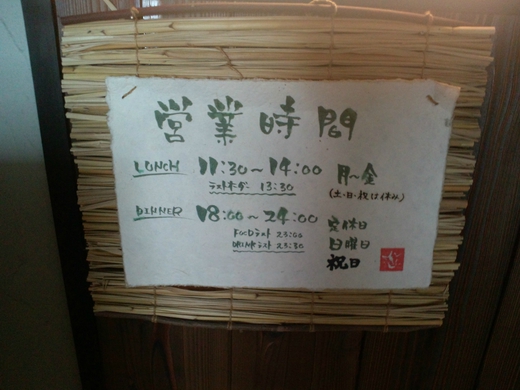 営業時間
LUNCH 11:30〜14:00 月〜金
ラストオーダー 13:30 (土・日・祝は休み)
DINNER 18:00〜24:00 定休日
FOODラスト 23:00 日曜日
DRINKラスト 23:30 祝日